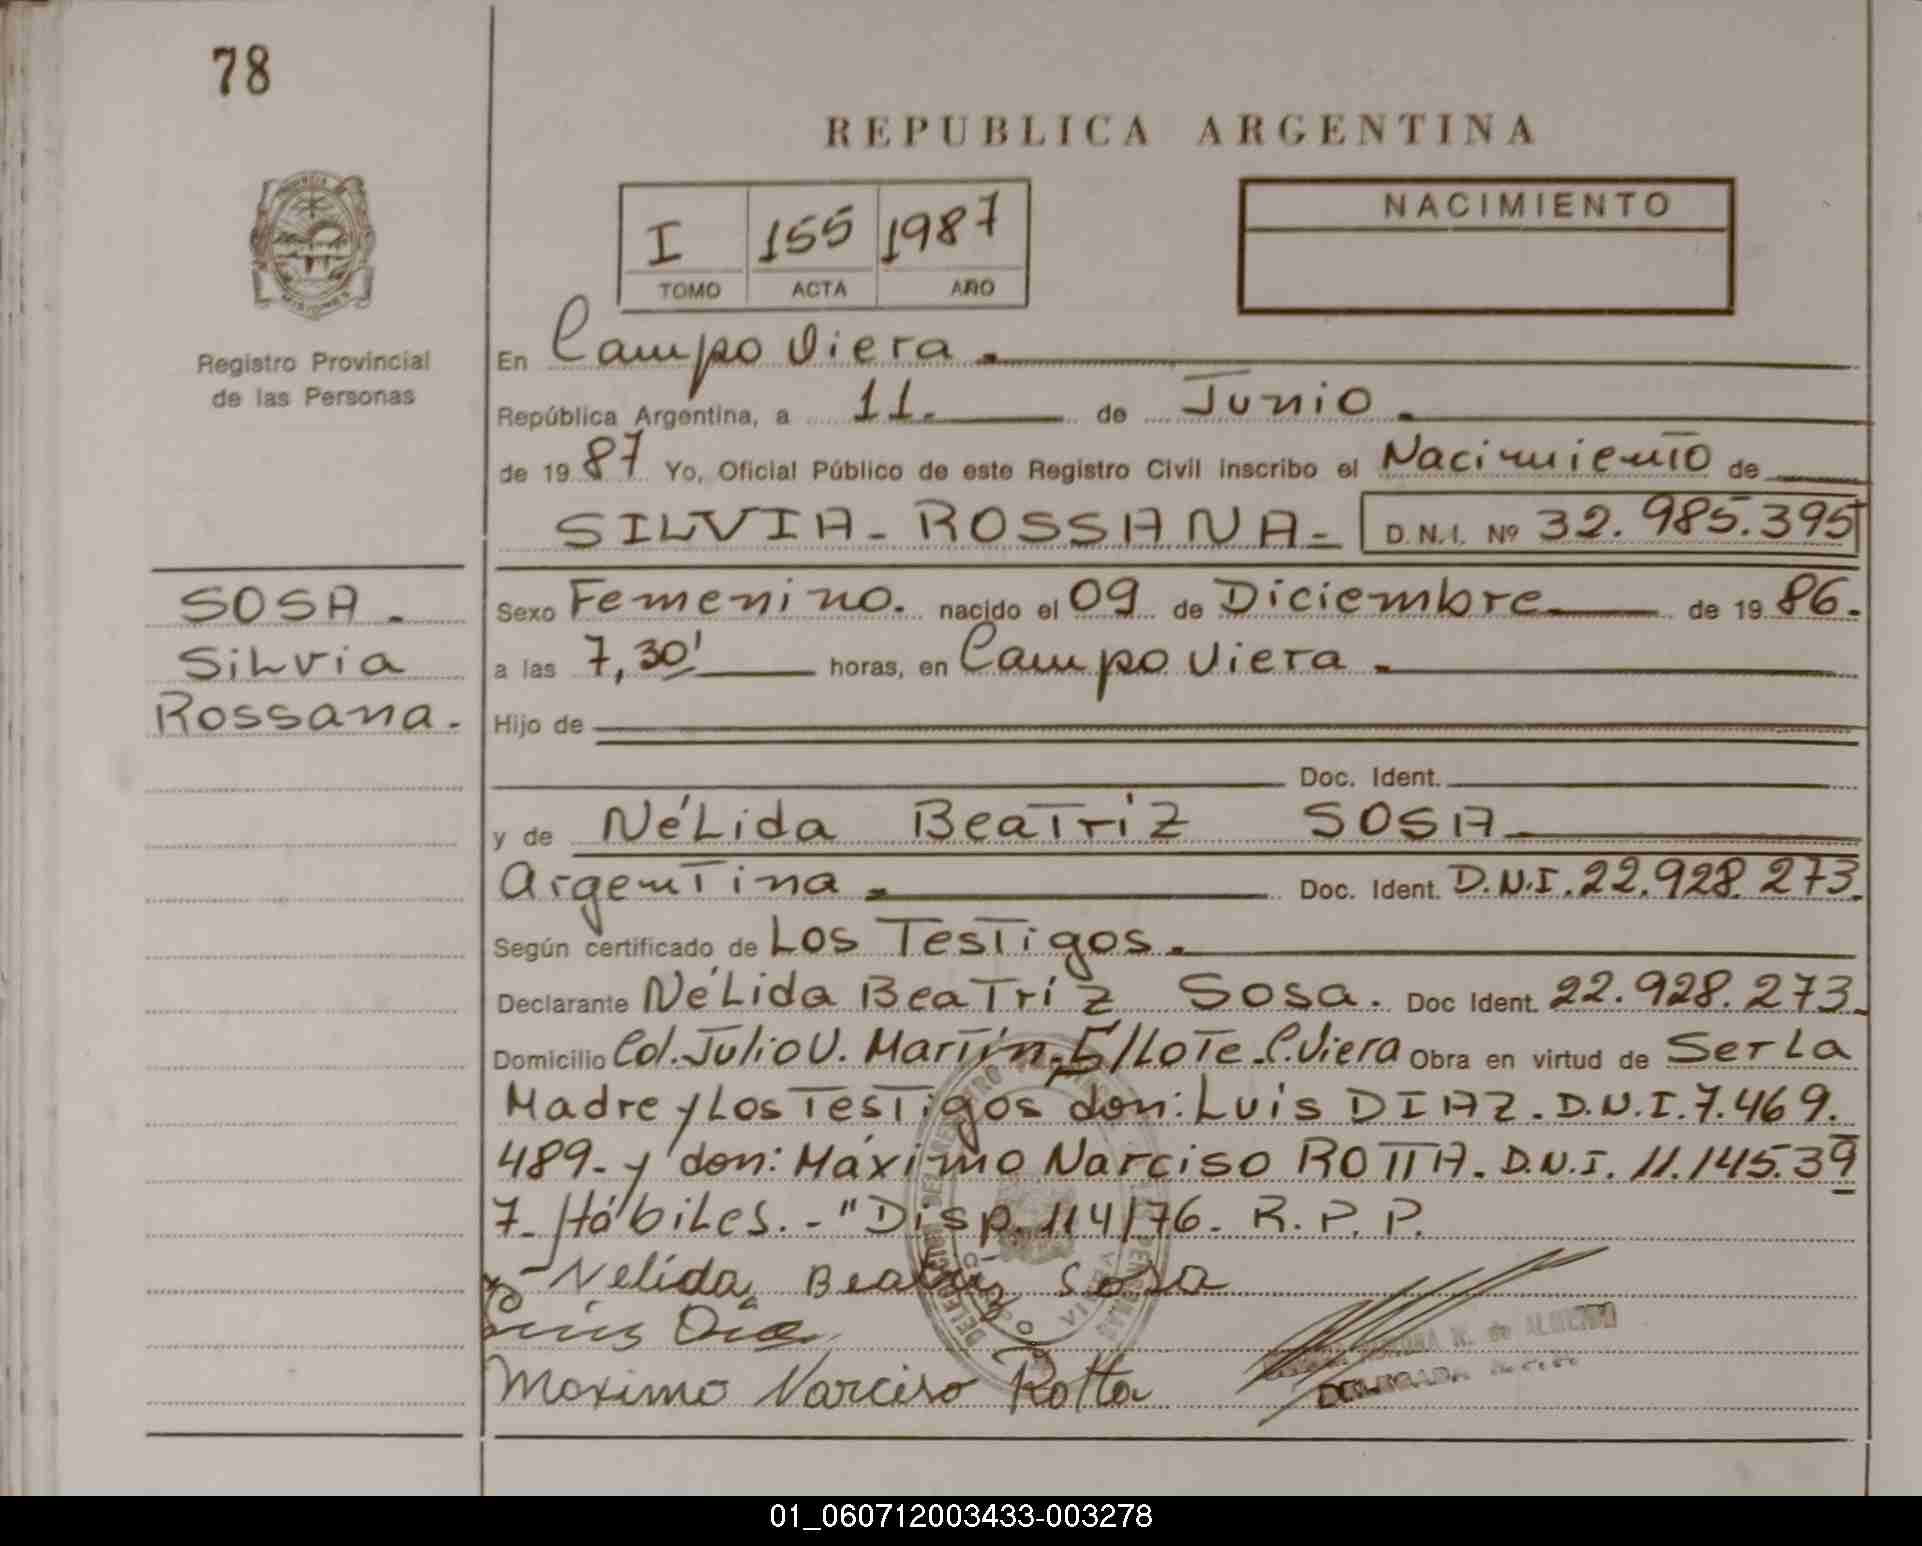 78
REPUBLICA ARGENTINA
I 155 1987
TOMO ACTA AÑO
NACIMIENTO
Registro Provincial
de las Personas
En Campo Viera.
República Argentina, a 11. de Junio.
de 1987 Yo, Oficial Público de este Registro Civil inscribo el Nacimiento de
SILVIA - ROSSANA - D.N.I. Nº 32.985.395
SOSA.
Silvia
Rossana.
Sexo Femenino. nacido el 09 de Diciembre de 1986.
a las 7,30' horas, en Campo Viera.
Hijo de
Doc. Ident.
y de Nélida Beatríz SOSA
Argentina. Doc. Ident. D.N.I. 22.928.273.
Según certificado de Los Testigos.
Declarante Nélida Beatríz Sosa. Doc Ident. 22.928.273.
Domicilio Col. Julio U. Martín. S/Lote. C. Viera Obra en virtud de Ser La
Madre y Los Testigos don: Luis DIAZ. D.N.I. 7.469.
489. y don: Máximo Narciso ROTTA. D.N.I. 11.145.39
7. Hábiles. - "Disp. 114/76. R.P.P.
Nelida Beatriz Sosa
Luis Diaz
Maximo Narciso Rotta
N. de
DELEGADA
01_060712003433-003278